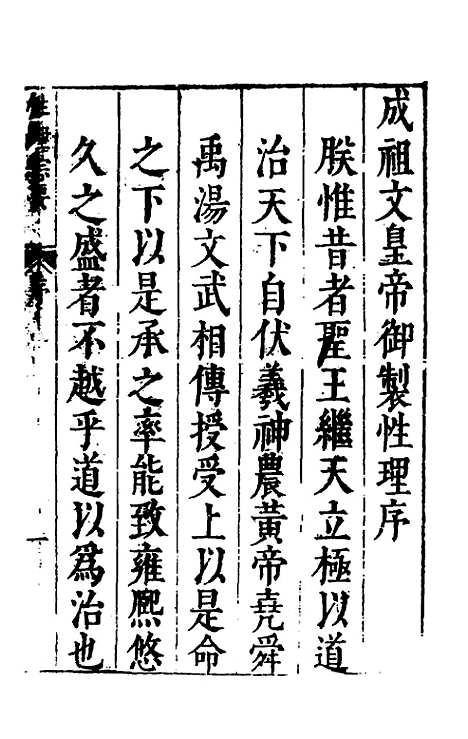 成祖文皇帝御製性理序
朕惟昔者聖王繼天立極以道
治天下自伏羲神農黃帝堯舜
禹湯文武相傳授受上以是命
之下以是承之率能致雍熈悠
久之盛者不越乎道以爲治也